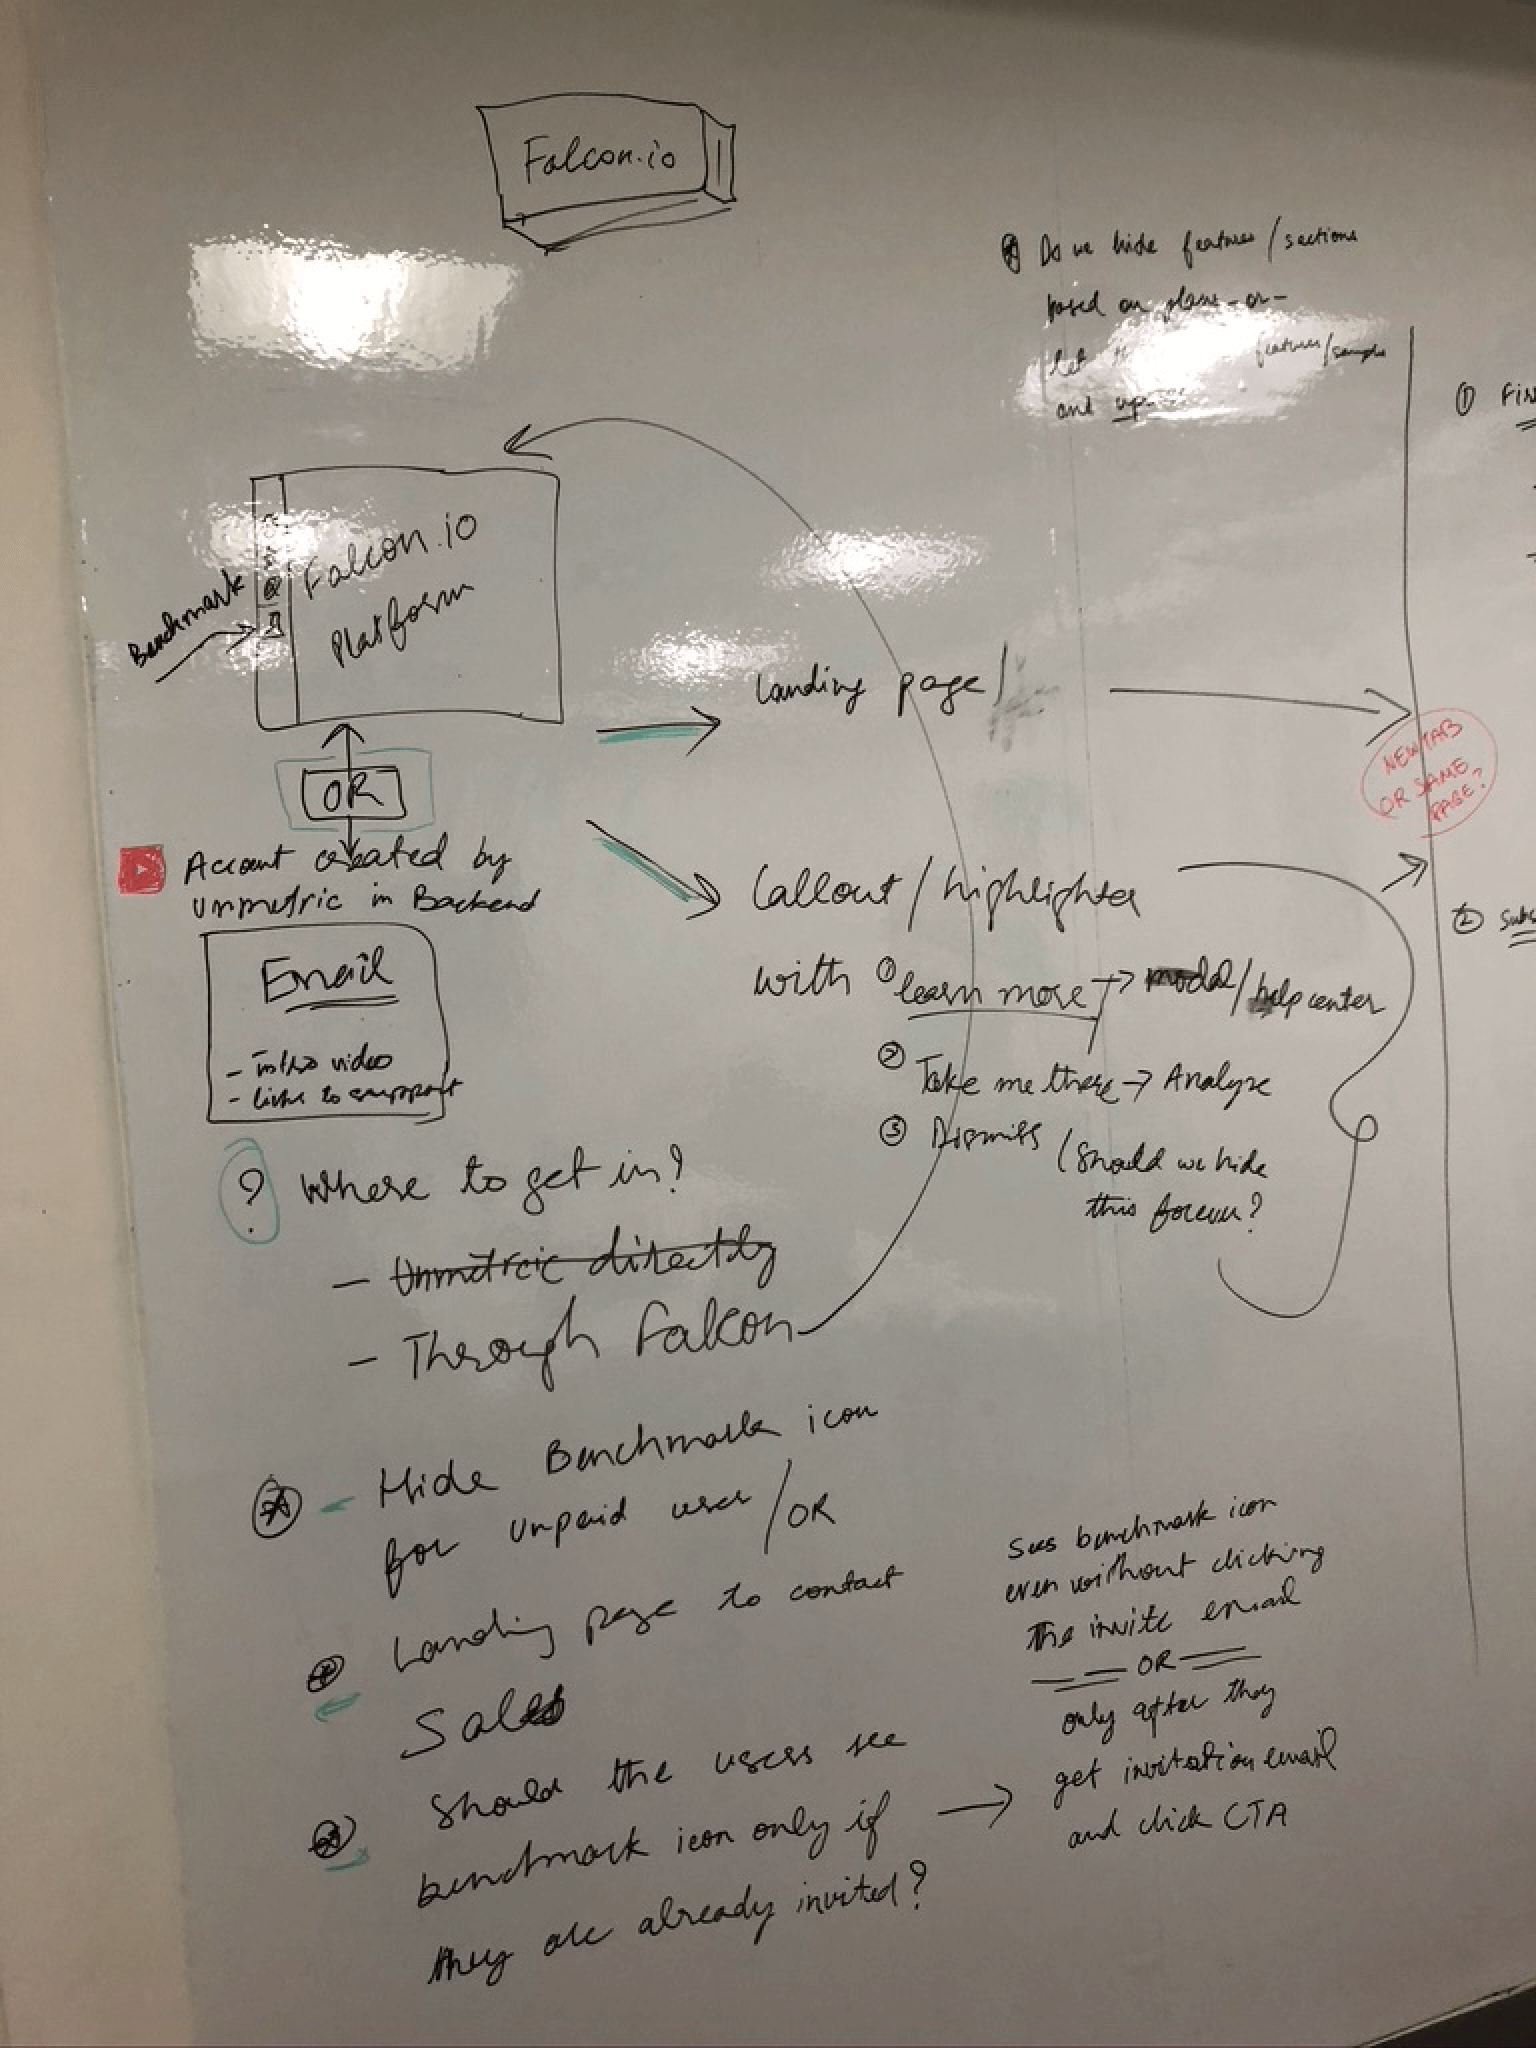 Falcon.io
Do we hide features/sections
based on plans -or-
let features/sample
and
① FIN
Falcon.io
Platform
Benchmark
Landing page/
NEW TAB
OR SAME
PAGE?
OR
Account created by
Unmetric in Backend
Email
- intro video
- link to support
Callout/highlighter
with ① learn more → modal/help center
② Take me there → Analyze
③ Dismiss (Should we hide
this forever?
② Subs
? Where to get in?
- Unmetric directly
- Through Falcon
- Hide Benchmark icon
for unpaid user/OR
Landing page to contact
Sales
Should the users see
benchmark icon only if →
they are already invited?
Sees benchmark icon
even without clicking
the invite email
== OR ==
only after they
get invitation email
and click CTA